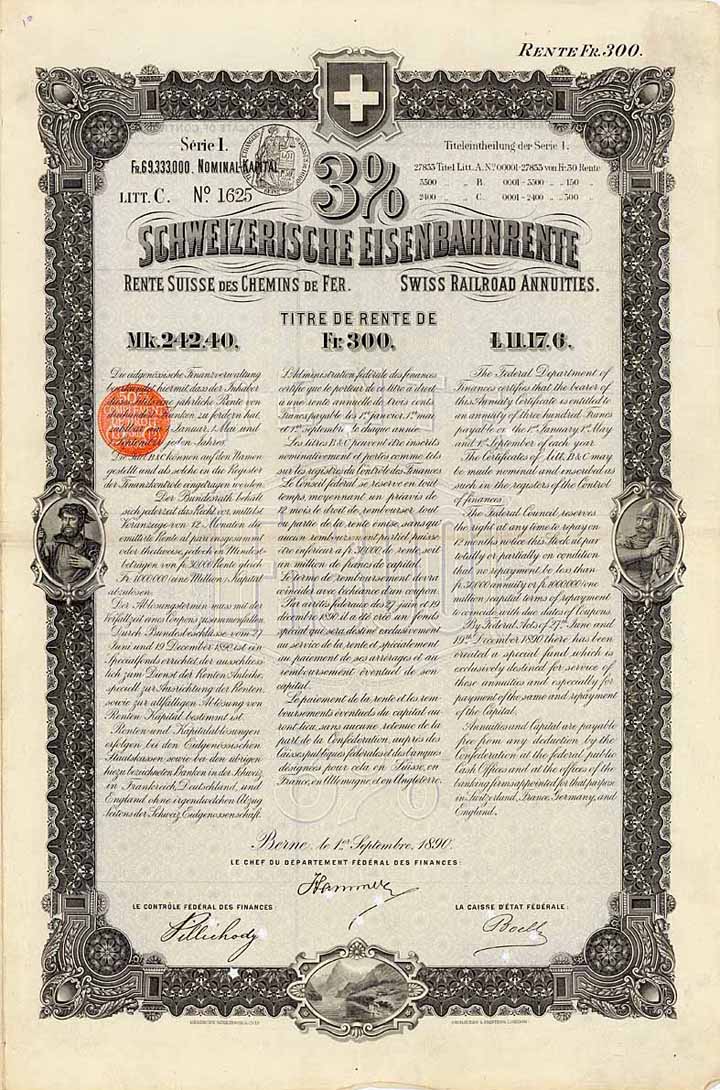 RENTE FR. 300.
Série I.
Fr. 69,333,000. NOMINAL-KAPITAL
LITT. C. No. 1625
Titeleintheilung der Serie I.
27853 Titel Litt. A. No. 0001-27853 von Fr. 30 Rente
5500 " " B. " 0001-5500 " " 150 "
2400 " " C. " 0001-2400 " " 300 "
3%
SCHWEIZERISCHE EISENBAHNRENTE
RENTE SUISSE DES CHEMINS DE FER.
SWISS RAILROAD ANNUITIES.
TITRE DE RENTE DE
Mk. 242.40.
Fr. 300.
£ 11.17.6.
Die eidgenössische Finanzverwaltung
beurkundet hiermit, dass der Inhaber
dieses Titels eine jährliche Rente von
dreihundert Franken, zu fordern hat,
zahlbar am Januar, 1. Mai und
September jeden Jahres.
Die Titel B & C können auf den Namen
gestellt und als solche in die Register
der Finanzkontrole eingetragen werden.
Der Bundesrath behält
sich jederzeit das Recht vor, mittelst
Voranzeige von 12 Monaten die
emittirte Rente al pari insgesammt
oder theilweise, jedoch in Mindest-
beträgen von fr. 30,000 Rente gleich
Fr. 1000,000 (eine Million) Kapital
abzulösen.
Der Ablösungstermin muss mit der
Verfallzeit eines Coupons zusammenfallen.
Durch Bundesbeschlüsse vom 27
Juni und 19 Dezember 1890 ist ein
Spezialfond errichtet, der ausschliess-
lich zum Dienst der Renten-Anleihe,
speziell zur Ausrichtung der Renten,
sowie zur allfälligen Ablösung von
Renten Kapital bestimmt ist.
Renten und Kapitalablösungen
erfolgen bei den Eidgenössischen
Staatskassen sowie bei den übrigen
hiezu bezeichneten Banken in der Schweiz,
in Frankreich, Deutschland, und
England ohne irgendwelchen Abzug
seitens der Schweiz. Eidgenossenschaft.
L'Administration fédérale des finances
certifie que le porteur de ce titre a droit
a une rente annuelle de trois cents
Francs payable les 1er janvier, 1er mai
et 1er septembre de chaque année.
Les titres B & C peuvent être inscrits
nominativement et portés comme tels
sur les registres du Contrôle des Finances.
Le Conseil fédéral se réserve en tout
temps, moyennant un préavis de
12 mois le droit de rembourser tout
ou partie de la rente émise, sans qu'
aucun remboursement partiel puisse
être inférieur a fr. 30,000 de rente, soit
un million de francs de capital.
Le terme de remboursement devra
coïncider avec l'échéance d'un coupon.
Par arrêtés fédéraux des 27 juin et 19
décembre 1890 il a été créé un fonds
spécial qui sera destiné exclusivement
au service de la rente et spécialement
au paiement de ses arrérages et au
remboursement éventuel de son
capital.
Le paiement de la rente et les rem-
boursements éventuels du capital au-
ront lieu, sans aucune retenue de la
part de la Confédération, auprès des
Caisses publiques fédérales et des banques
désignées pour cela en Suisse, en
France, en Allemagne, et en Angleterre.
The Federal Department of
Finances certifies that the bearer of
this Annuity Certificate is entitled to
an annuity of three hundred Francs
payable on the 1st January, 1st May
and 1st September of each year.
The Certificates of Litt. B & C may
be made nominal and inscribed as
such in the registers of the Control
of finances.
The Federal Council, reserves
the right at any time to repay on
12 months notice this Stock at par
totally or partially on condition
that no repayment be less than
fr. 30,000 annuity or fr. 1000000 (one
million) capital terms of repayment
to coincide with due dates of Coupons.
By Federal Acts of 27th June and
19th December 1890 there has been
created a special fund which is
exclusively destined for service of
these annuities and especially for
payment of the same and repayment
of the Capital.
Annuities and Capital are payable
free from any deduction by the
Confederation at the federal public
Cash Offices and at the offices of the
banking firms appointed for that purpose
in Switzerland, France, Germany, and
England.
Berne, le 1er Septembre, 1890.
LE CHEF DU DÉPARTEMENT FÉDÉRAL DES FINANCES:
Hammer
LE CONTRÔLE FÉDÉRAL DES FINANCES:
Pillichody
LA CAISSE D'ÉTAT FÉDÉRALE: